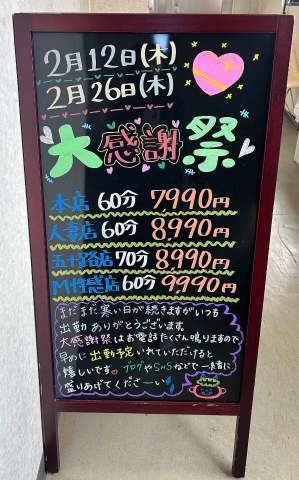 2月12日(木)
2月26日(木)
大感謝祭
本店 60分 7990円
人妻店 60分 8990円
五十路店 70分 8990円
M性感店 60分 9990円
まだまだ寒い日が続きますがいつも
出勤ありがとうございます。
大感謝祭はお電話たくさん鳴りますので
早めに出勤予定いれていただけると
嬉しいです。
ブログやSNSなどで一緒に
盛りあげてくださーい